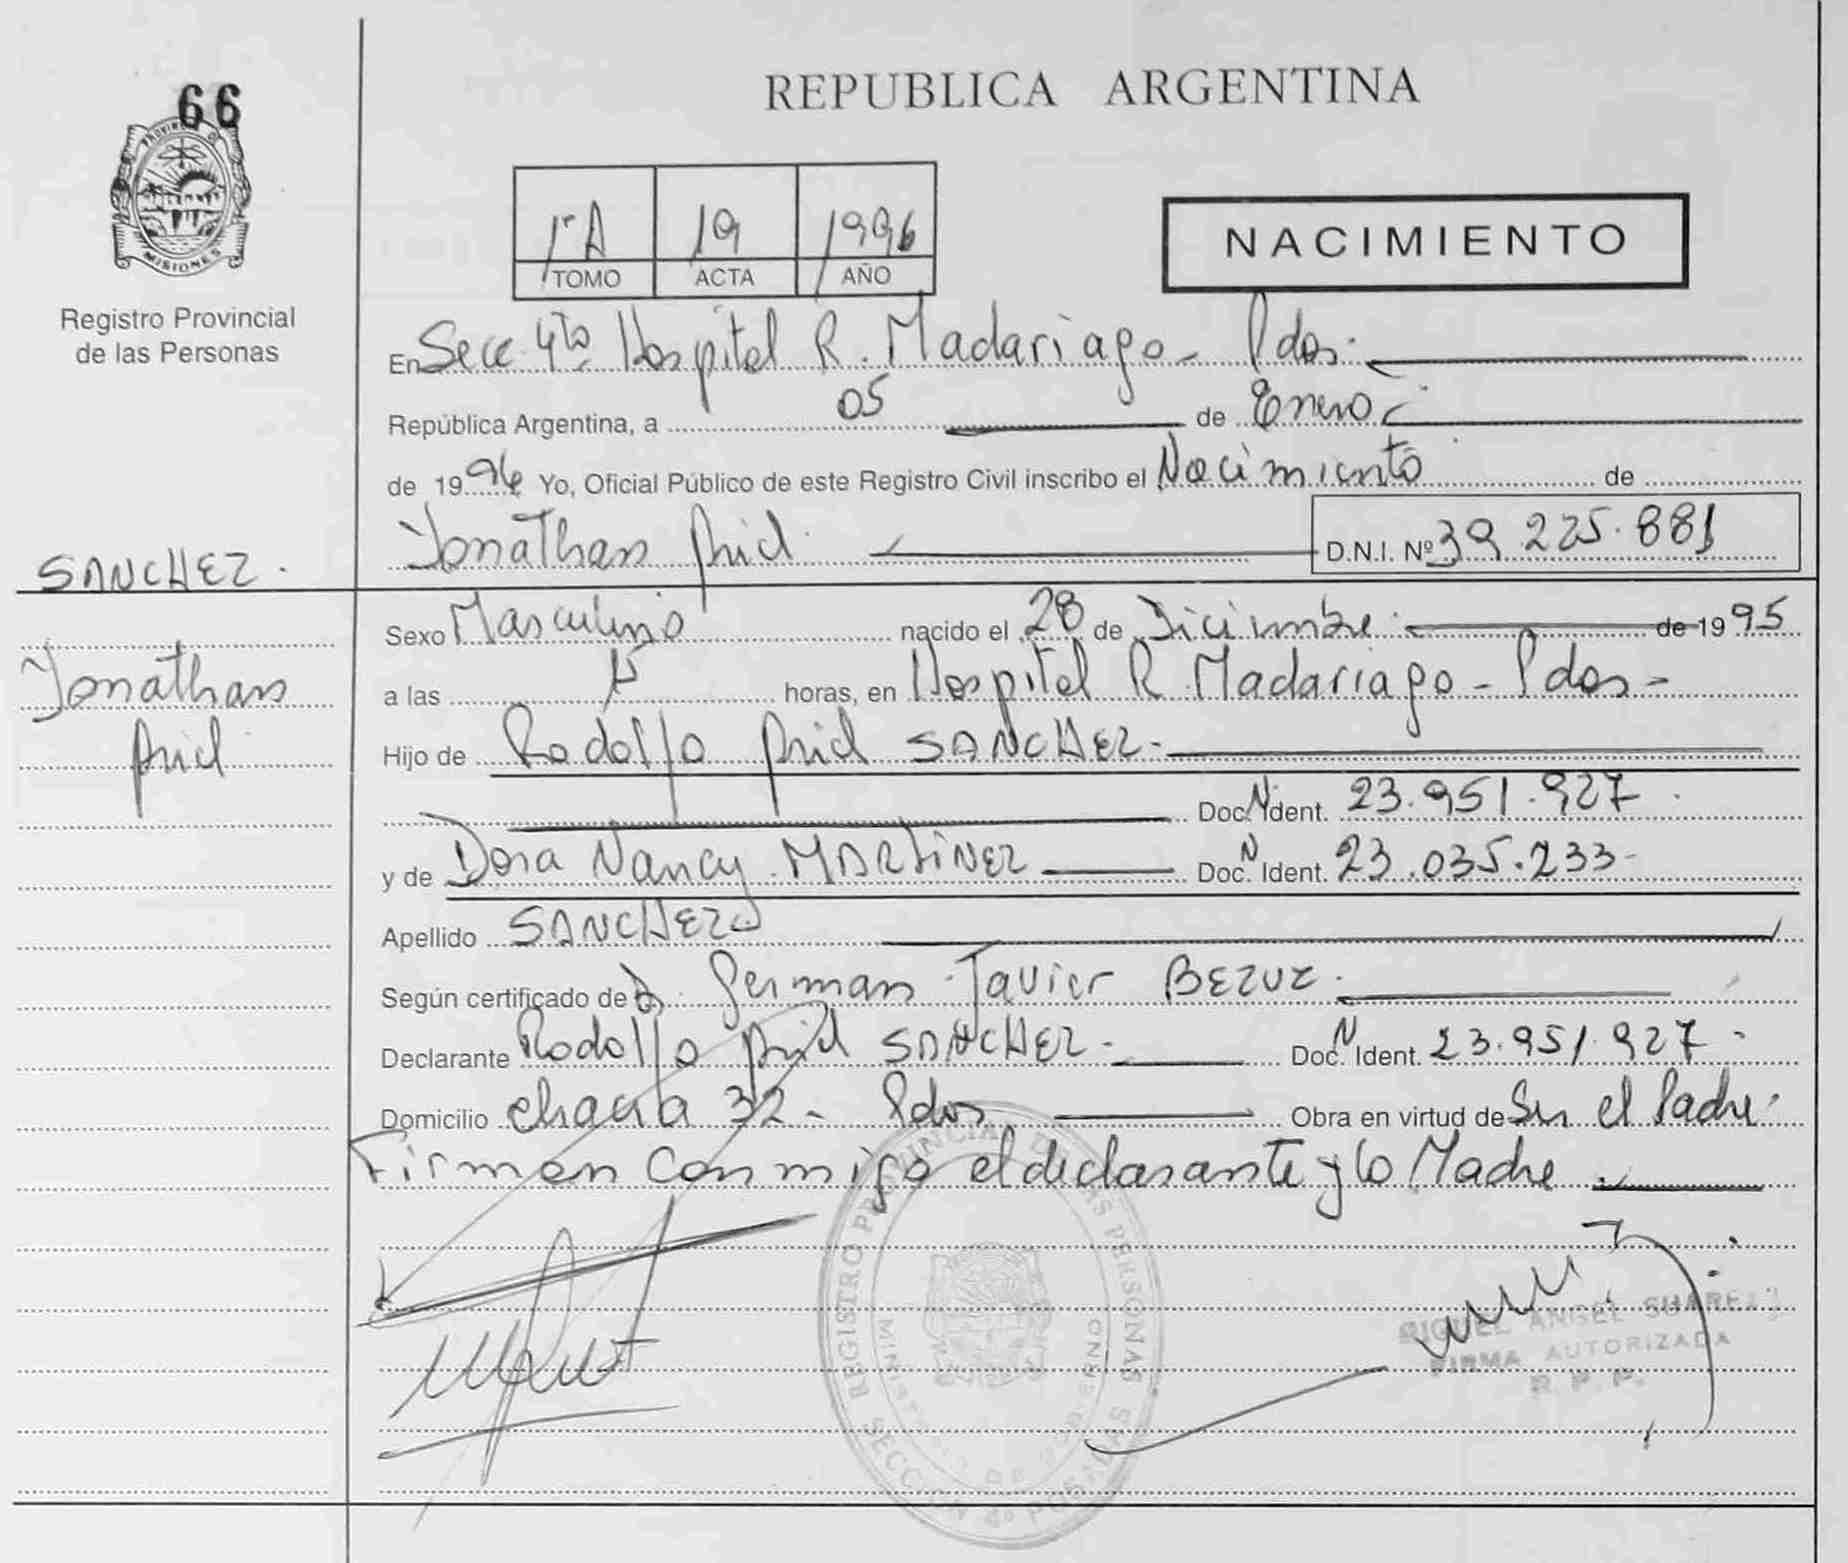 66
PROVINCIA DE
MISIONES
Registro Provincial
de las Personas
REPUBLICA ARGENTINA
1º A 19 1996
TOMO ACTA AÑO
NACIMIENTO
En Secc. 4ta. Hospital R. Madariaga - Pdas.
República Argentina, a 05 de Enero
de 1996 Yo, Oficial Público de este Registro Civil inscribo el Nacimiento de
Jonathan D.N.I. Nº 39.225.881
SANCHEZ.
Sexo Masculino nacido el 28 de Diciembre de 1995
Jonathan
a las horas, en Hospital R. Madariaga - Pdas -
Hijo de Rodolfo SANCHEZ.
Doc. N Ident. 23.951.927
y de Dora Nancy MARTINEZ Doc. N Ident. 23.035.233
Apellido SANCHEZ
Según certificado de German Javier BEZUZ.
Declarante Rodolfo SANCHEZ. Doc. N Ident. 23.951.927
Domicilio chacra 32 - Pdas Obra en virtud de Ser el Padre.
Firman conmigo el declarante y la Madre
REGISTRO PROVINCIAL DE LAS PERSONAS
MINISTERIO DE GOBIERNO
SECCION 4º POSADAS
MIGUEL ANGEL SUAREZ
FIRMA AUTORIZADA
R. P. P.